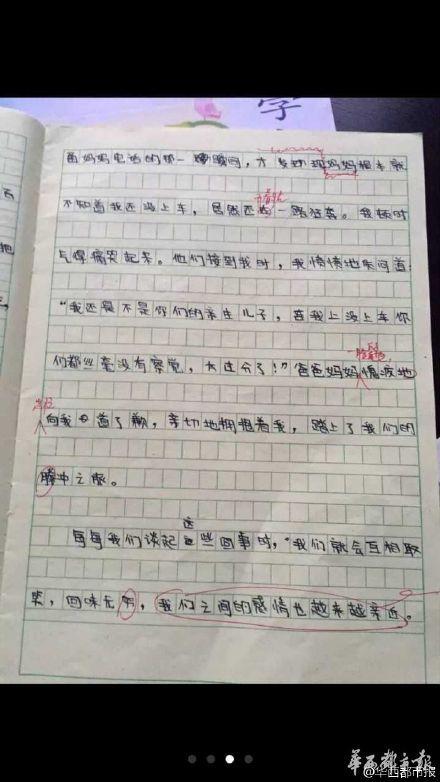 学
面妈妈电话的那一瞬间，才发现妈妈根本就
不知道我还没上车，居然还在一路狂奔。我顿时
气得痛哭起来。他们接到我时，我愤愤地质问道：
“我还是不是你们的亲生儿子，连我上没上车你
们都丝毫没有察觉，太过分了！”爸爸妈妈愧疚地
向我道了歉，亲切地拥抱着我，踏上了我们的
腾冲之旅。
这
每每我们谈起些回事时，“我们就会互相取
笑，回味无穷，我们之间的感情也越来越亲近。
华西都市报
@华西都市报